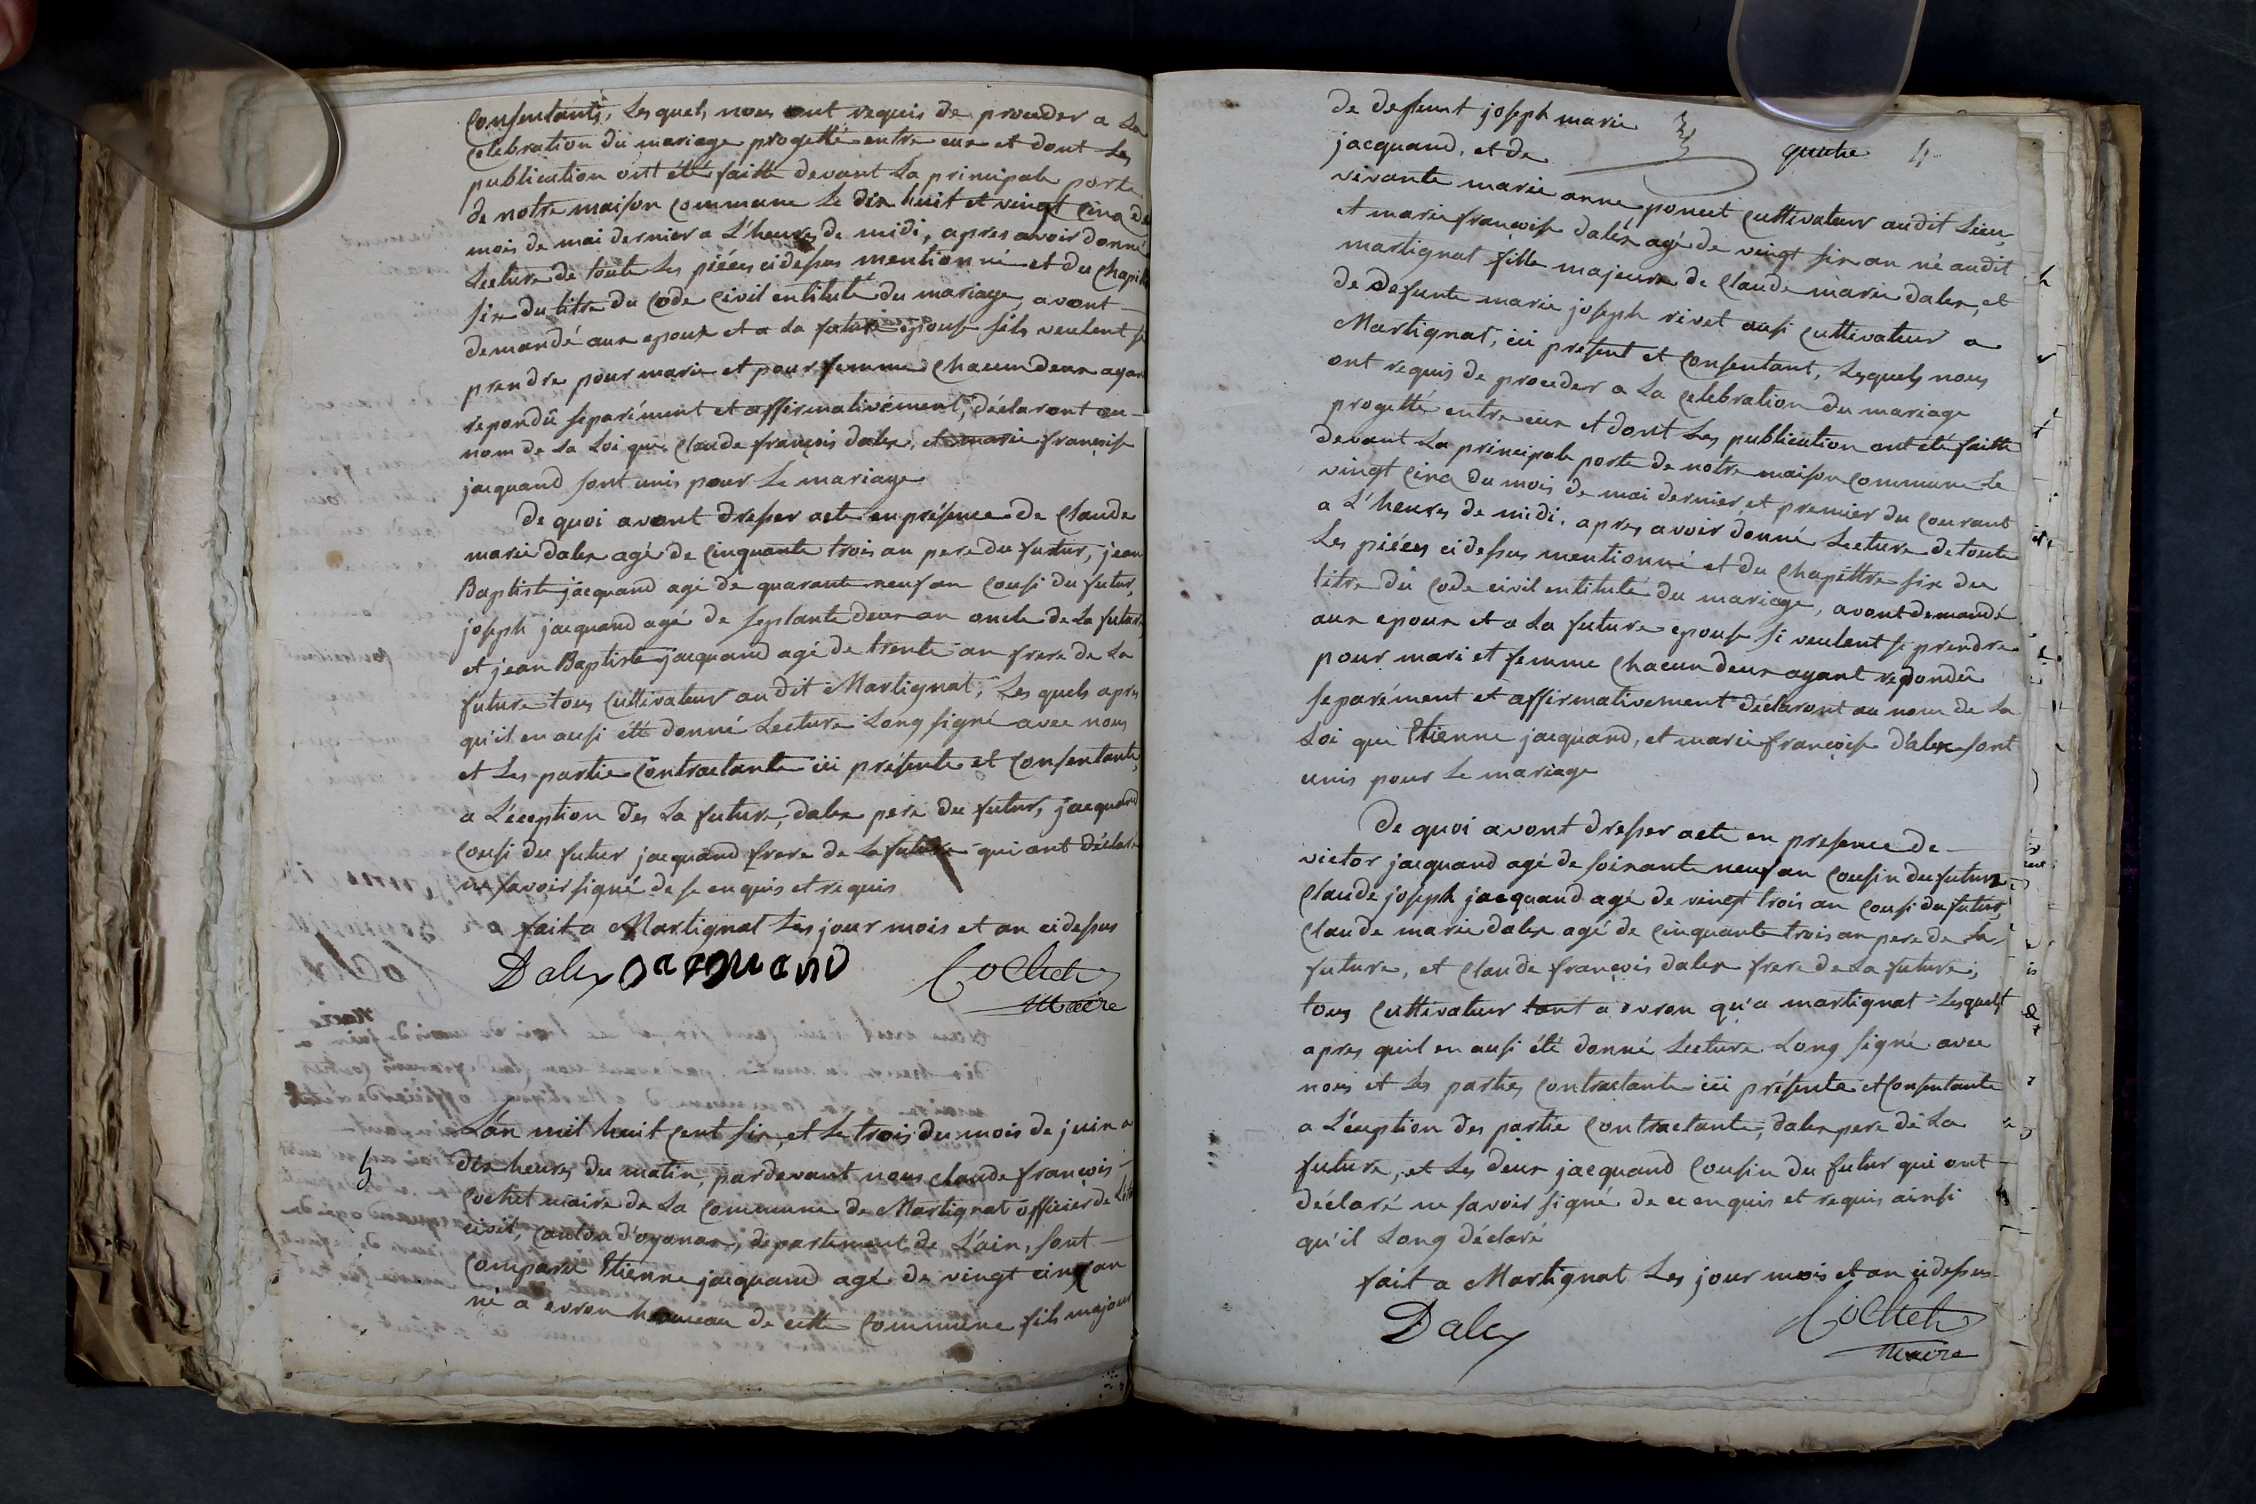 consentants, Les quels nous ont requis de proceder a La
Celebration du mariage progetté entre eux et dont Les
publication ont été faitte devant La principale porte
de notre maison commune Le dix huit et vingt cinq du
mois de mai dernier a L'heures de midi, apres avoir donné
Lecture de toute Les piéces cidessus mentionné et du Chapitre
six du titre du Code Civil entitulé du mariage avont
demandé aux epoux et a La future epouse sils veulent se
prendre pour marie et pour femme Chacun deux ayant
repondû séparément et affirmativément, déclaront au
nom de La Loi que Claude françois dalex, et marie françoise
jacquand sont unis pour Le mariage
De quoi avont dresser acte en présence de Claude
marie dalex agé de Cinquante trois an pere du futur, jean
Baptiste jacquand agé de quarante neuf an Cousi du futur,
joseph jacquand agé de septante deux an oncle de La future,
et jean Baptiste jacquand agé de trente an frere de La
future tous Cultivateur au dit Martignat, Les quels apres
qu'il en ausi été donné Lecture Long signé avec nous
et Les partie Contractante ici présente et Consentante,
a L'éception Des La future, dalex pere du futur, jacquand
Cousi du futur jacquand frere de La future qui ont déclaré
ne savoir signé de se enquis et requis
fait a Martignat Les jour mois et an cidessus
Dalex jacquand Cochet
Maire
L'an mil huit Cent six, et Le trois du mois de juin a
5
dix heures du matin, pardevant nous Claude françois
Cochet maire de La Commune de Martignat officier de L'état
civil, Canton d'oyonax, departement de L'ain, sont
Comparu Etienne jacquand agé de vingt cinq an
né a evron hameau de cette Commune fils majeur
de deffunt joseph marie
quatre 4
jacquand, et de
vivante marie anne poncet Cultivateur audit Lieu,
et marie françoise dalex agé de vingt six an né audit
martignat fille majeure de Claude marie dalex, et
de defunte marie joseph rivet ausi Cultivateur a
Martignat, ici present et Consentant, Lesquels nous
ont requis de proceder a La Celebration du mariage
progetté entre eux et dont Les publication ont été faitte
devant La principale porte de notre maison Commune Le
vingt Cinq du mois de mai dernier, et premier du Courant
a L'heures de midi, apres avoir donné Lecture de toute
Les piéces cidessus mentionné et du Chapittre six du
titre du Code civil entitulé du mariage, avont demandé
aux epoux et a La future epouse si veulent se prendre
pour mari et femme Chacun deux ayant repondû
separément et affirmativement déclaront au nom de La
Loi que Etienne jacquand, et marie françoise dalex sont
unis pour Le mariage
De quoi avont dresser acte en presence de
victor jacquand agé de soixante neuf an Cousin du futur
Claude joseph jacquand agé de vingt trois an Cousi du futur,
Claude marie dalex agé de Cinquante trois an pere de La
future, et Claude françois dalex frere de La future,
tous Cultivateur tant a evron qu'a martignat Lesquels
apres quil en ausi été donné Lecture Long signé avec
nous et Les parties Contractante ici présente et Consentante
a L'éception Des partie Contractante, dalex pere de La
future, et Les deux jacquand Cousin du futur qui ont
déclaré ne savoir signé de ce enquis et requis ainsi
qu'il Long déclaré
fait a Martignat Les jour mois et an cidessus
Dalex Cochet
Maire